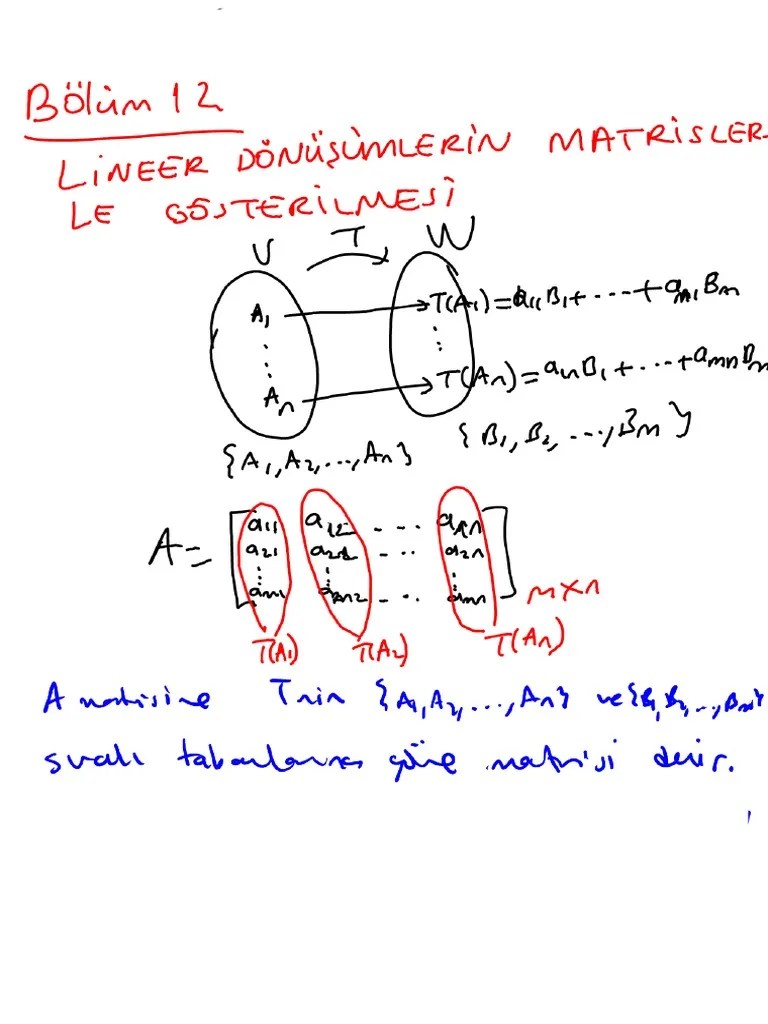 Bölüm 12
LİNEER DÖNÜŞÜMLERİN MATRİSLER
LE GÖSTERİLMESİ
V T W
A₁ T(A₁)=a₁₁B₁+...+aₘ₁Bₘ
⋮ ⋮
Aₙ T(Aₙ)=a₁ₙB₁+...+aₘₙBₘ
{A₁,A₂,...,Aₙ} {B₁,B₂,...,Bₘ}
a₁₁ a₁₂ - - - a₁ₙ
A= a₂₁ a₂₂ - - - a₂ₙ
⋮ ⋮ ⋮
aₘ₁ aₘ₂ - - - aₘₙ m×n
T(A₁) T(A₂) T(Aₙ)
A matrisine T nin {A₁,A₂,...,Aₙ} ve {B₁,B₂,...,Bₘ}
sıralı tabanlarına göre matrisi denir.